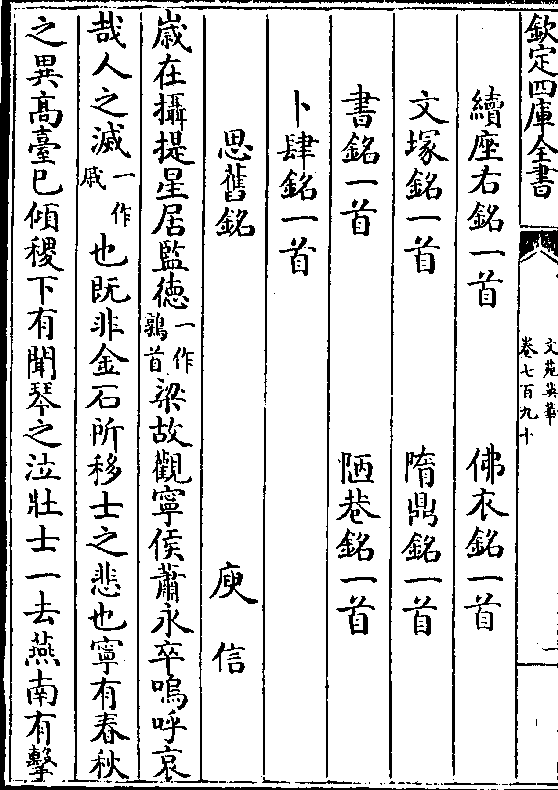 欽定四庫全書
文苑英華
卷七百九十
續座右銘一首 佛衣銘一首
文塚銘一首 隋鼎銘一首
書銘一首 陋巷銘一首
卜肆銘一首
思舊銘 庾信
歲在攝提星居監徳一作鶉首梁故觀寧侯蕭永卒嗚呼哀
哉人之滅一作戚也既非金石所移士之悲也寧有春秋
之異髙臺已傾稷下有聞琴之泣壯士一去燕南有擊